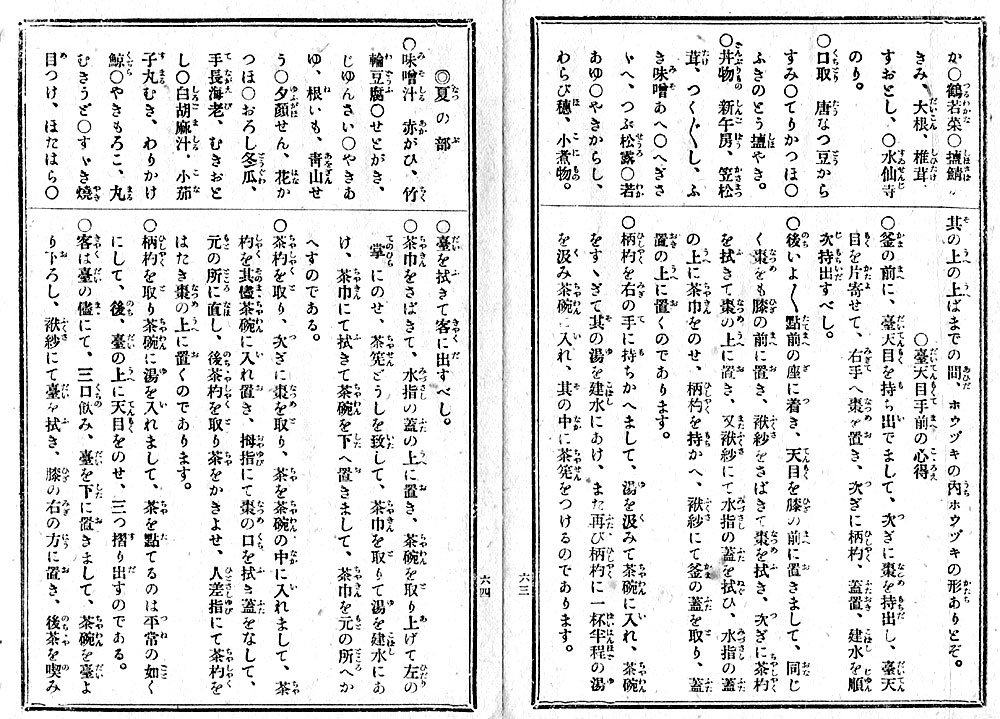 か〇鶴若菜〇擅鯖〟
きみ、大根、椎茸
すおとし、〇水仙寺
のり。
〇口取　唐なつ豆から
すみ〇てりかつほ〇
ふきのとう擅やき。
〇丼物　新午房、笠松
茸、つく〲し、ふ
き味噌あへ〇へぎさ
ゝへ、つぶ松露〇若
あゆ〇やきからし、
わらび穂、小煮物。
其の上の上ばまでの間、ホウヅキの内ホウヅキの形ありとぞ。
〇臺天目手前の心得
〇釜の前に、臺天目を持ち出でまして、次ぎに棗を持出し、臺天
目を片寄せて、右手へ棗を置き、次ぎに柄杓、蓋置、建水を順
次持出すべし。
〇後いよ〳〵點前の座に着き、天目を膝の前に置きまして、同じ
く棗をも膝の前に置き、袱紗をさばきて棗を拭き、次ぎに茶杓
を拭きて棗の上に置き、又袱紗にて水指の蓋を拭ひ、水指の蓋
の上に茶巾をのせ、柄杓を持かへ、袱紗にて釜の蓋を取り、蓋
置の上に置くのであります。
〇柄杓を右の手に持ちかへまして、湯を汲みて茶碗に入れ、茶碗
をすゝぎて其の湯を建水にあけ、また再び柄杓に一杯半程の湯
を汲み茶碗に入れ、其の中に茶筅をつけるのであります。
六三
◎夏の部
〇味噌汁　赤がひ、竹
輪豆腐〇せとがき、
じゆんさい〇やきあ
ゆ、根いも、靑山せ
う〇夕顔せん、花か
つほ〇おろし冬瓜、
手長海老、むきおと
し〇白胡麻汁、小茄
子丸むき、わりかけ
鯨〇やきもろこ、丸
むきうど〇すゝき燒
目つけ、ほたはら〇
〇臺を拭きて客に出すべし。
〇茶巾をさばきて、水指の蓋の上に置き、茶碗を取り上げて左の
掌にのせ、茶筅どうしを致して、茶巾を取りて湯を建水にあ
け、茶巾にて拭きて茶碗を下へ置きまして、茶巾を元の所へか
へすのである。
〇茶杓を取り、次ぎに棗を取り、茶を茶碗の中に入れまして、茶
杓を其儘茶碗に入れ置き、拇指にて棗の口を拭き蓋をなして、
元の所に直し、後茶杓を取り茶をかきよせ、人差指にて茶杓を
はたき棗の上に置くのであります。
〇柄杓を取り茶碗に湯を入れまして、茶を點てるのは平常の如く
にして、後、臺の上に天目をのせ、三つ摺り出すのである。
〇客は臺の儘にて、三口飮み、臺を下に置きまして、茶碗を臺よ
り下ろし、袱紗にて臺を拭き、膝の右の方に置き、後茶を喫み
六四